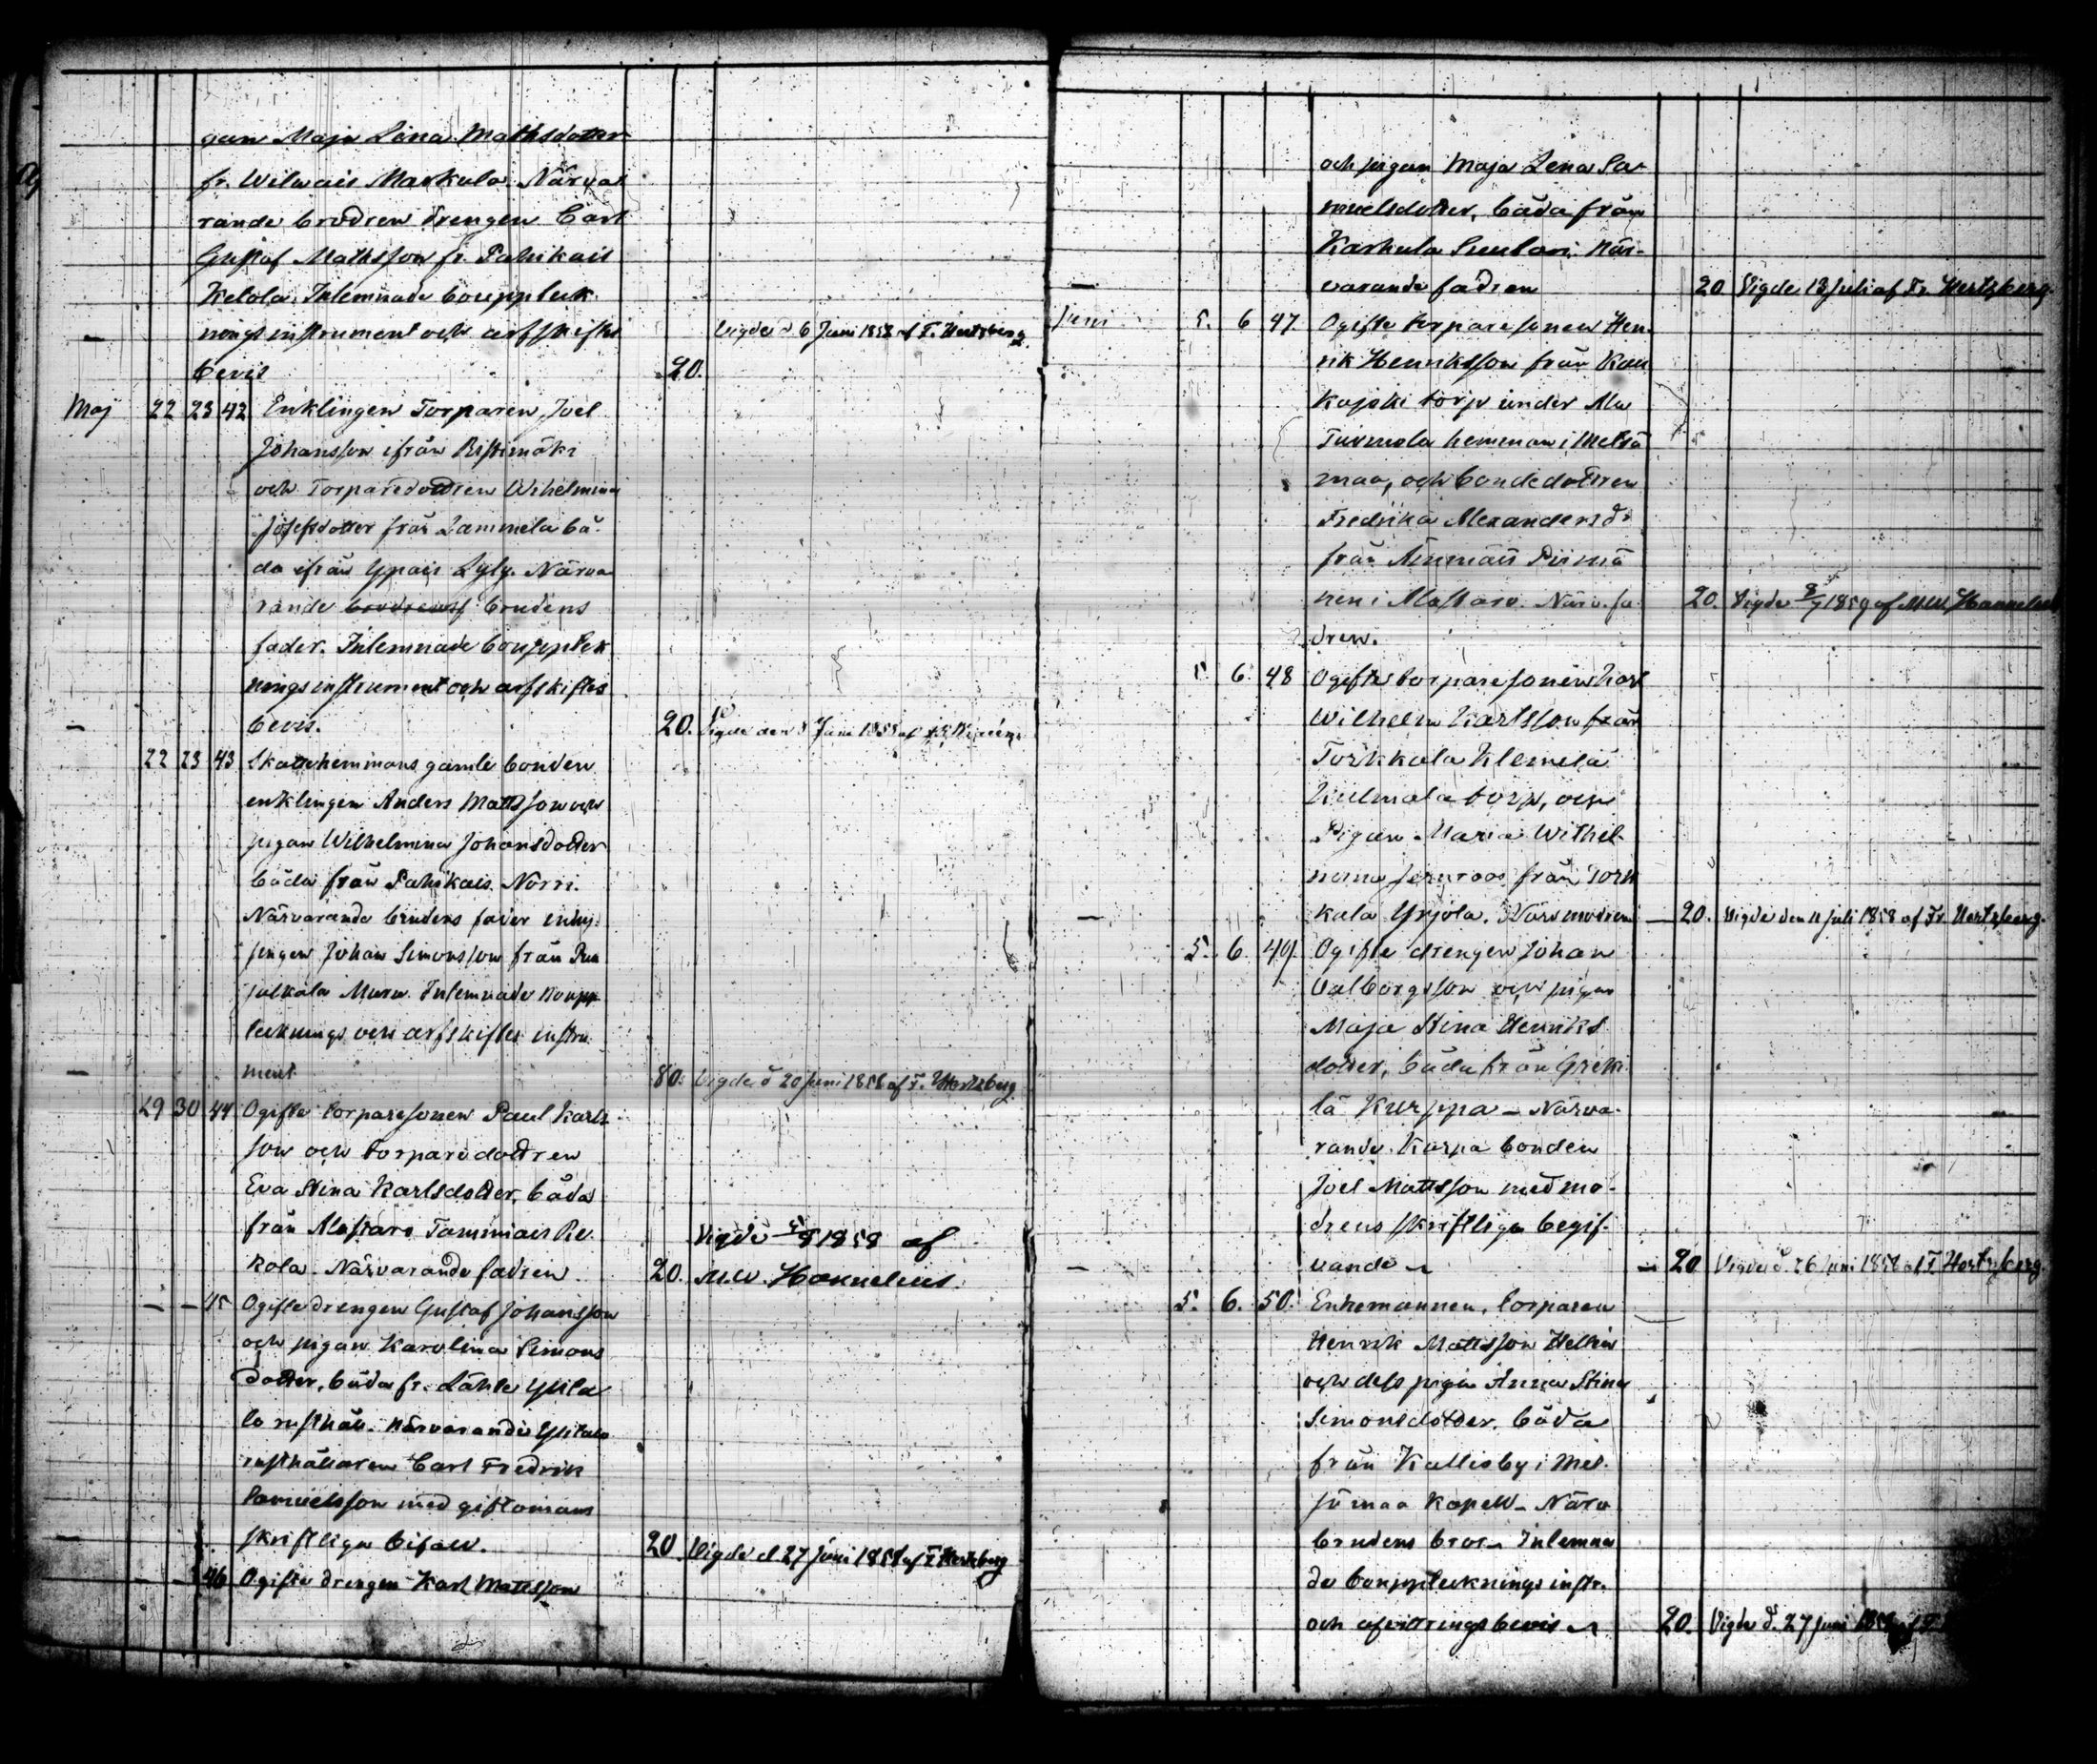 gan Maja Lena Mathsdotter
fr. Wilwais Markula. Närva
rande brodren drengen Carl
Gustaf Mathsson fr. Pahikais
Kelola. Inlemnade bouppteck
nings instrument och arfskiftes
Vigde d. 6 Juni 1858 af F. Hertzberg
bevis
20.
Maj 22 23 42 Enklingen Torparen Joel
Johansson ifrån Ristimäki
och Torparedottren Wilhelmina
Josefsdotter från Lammela bå-
da ifrån Ypäis Lyly. Närva
rande brodrens brudens
fader. Inlemnade bouppteck
nings instrument och arfskiftes
bevis. 20. Vigde den Juni 1858 af
22 23 43 Skattehemmans gamle bonden
enklingen Anders Mattsson och
pigan Wilhelmina Johansdotter
båda från Pahikais Norri.
Närvarande brudens fader inhy-
singen Johan Simonsson från
jalkala Muru. Inlemnade boupp
tecknings och arfskiftes instru
ment 80. Vigde d 20 Juni 1858 af F. Hertzberg
29 30 44 Ogifte torparesonen Paul Karls
son och torparedottren
Eva Stina Karlsdotter, båda
från Alastaro Tammiais Re
Vigde 1858 af
kola. Närvarande fadren 20. M.W. Hannelius.
— — 45 Ogifte drengen Gustaf Johansson
och pigan Karolina Simons
dotter, båda fr. Lähle Ylita
lo rusthåll. Närvarande Ylitalo
rusthållaren Carl Fredrik
Samuelsson med giftomans
skriftliga bifall. 20. Vigde d 27 Juni 1858 af F. Hertzberg
— — 46 Ogifte drengen Karl Mattsson
och pigan Maja Lena Sa-
muelsdotter, båda från
Karhula Suutari. När-
varande fadren 20 Vigde 18 Juli af Fr. Hertzberg
Juni 5. 6 47. Ogifte torparesonen Hen-
rik Henriksson från Kau
kajoki torp under Ala
Turmola hemman i Metsä
maa, och bondedottren
Fredrika Alexandersdr
från Ämmäis
nen i Alastaro. Närv. fa 20. Vigde 8/7 1859 af M.W. Hannelius
dren.
5 6 48 Ogifte torparesonen Karl
Wilhelm Karlsson från
Torkkala Klemelä
Kulmala torp, och
Pigan Maria Wilhel-
mina Jernroos från Tork
kala Yrjölä. Närv. modren — 20. Vigde den 11 juli 1858 af Fr. Hertzberg.
5. 6. 49. Ogifte drengen Johan
Valborgsson och pigan
Maja Stina Henriks
dotter, båda från Greki
lä Kurppa — Närva-
rande Kurpa bonden
Joel Mattsson med mo-
drens skriftliga begif-
vande — 20 Vigde d. 26 Juni 1858 af F. Hertzberg.
5. 6. 50. Enkemannen, torparen
Henrik Mattsson Hellin
och dess piga Anna Stina
Simonsdotter, båda
från Kallisby i Met-
sämaa Kapell — Närv
brudens bror — Inlemna
de bouppteknings instr.
och afvittrings bevis — 20. Vigde d. 27 Juni 1858 af F.